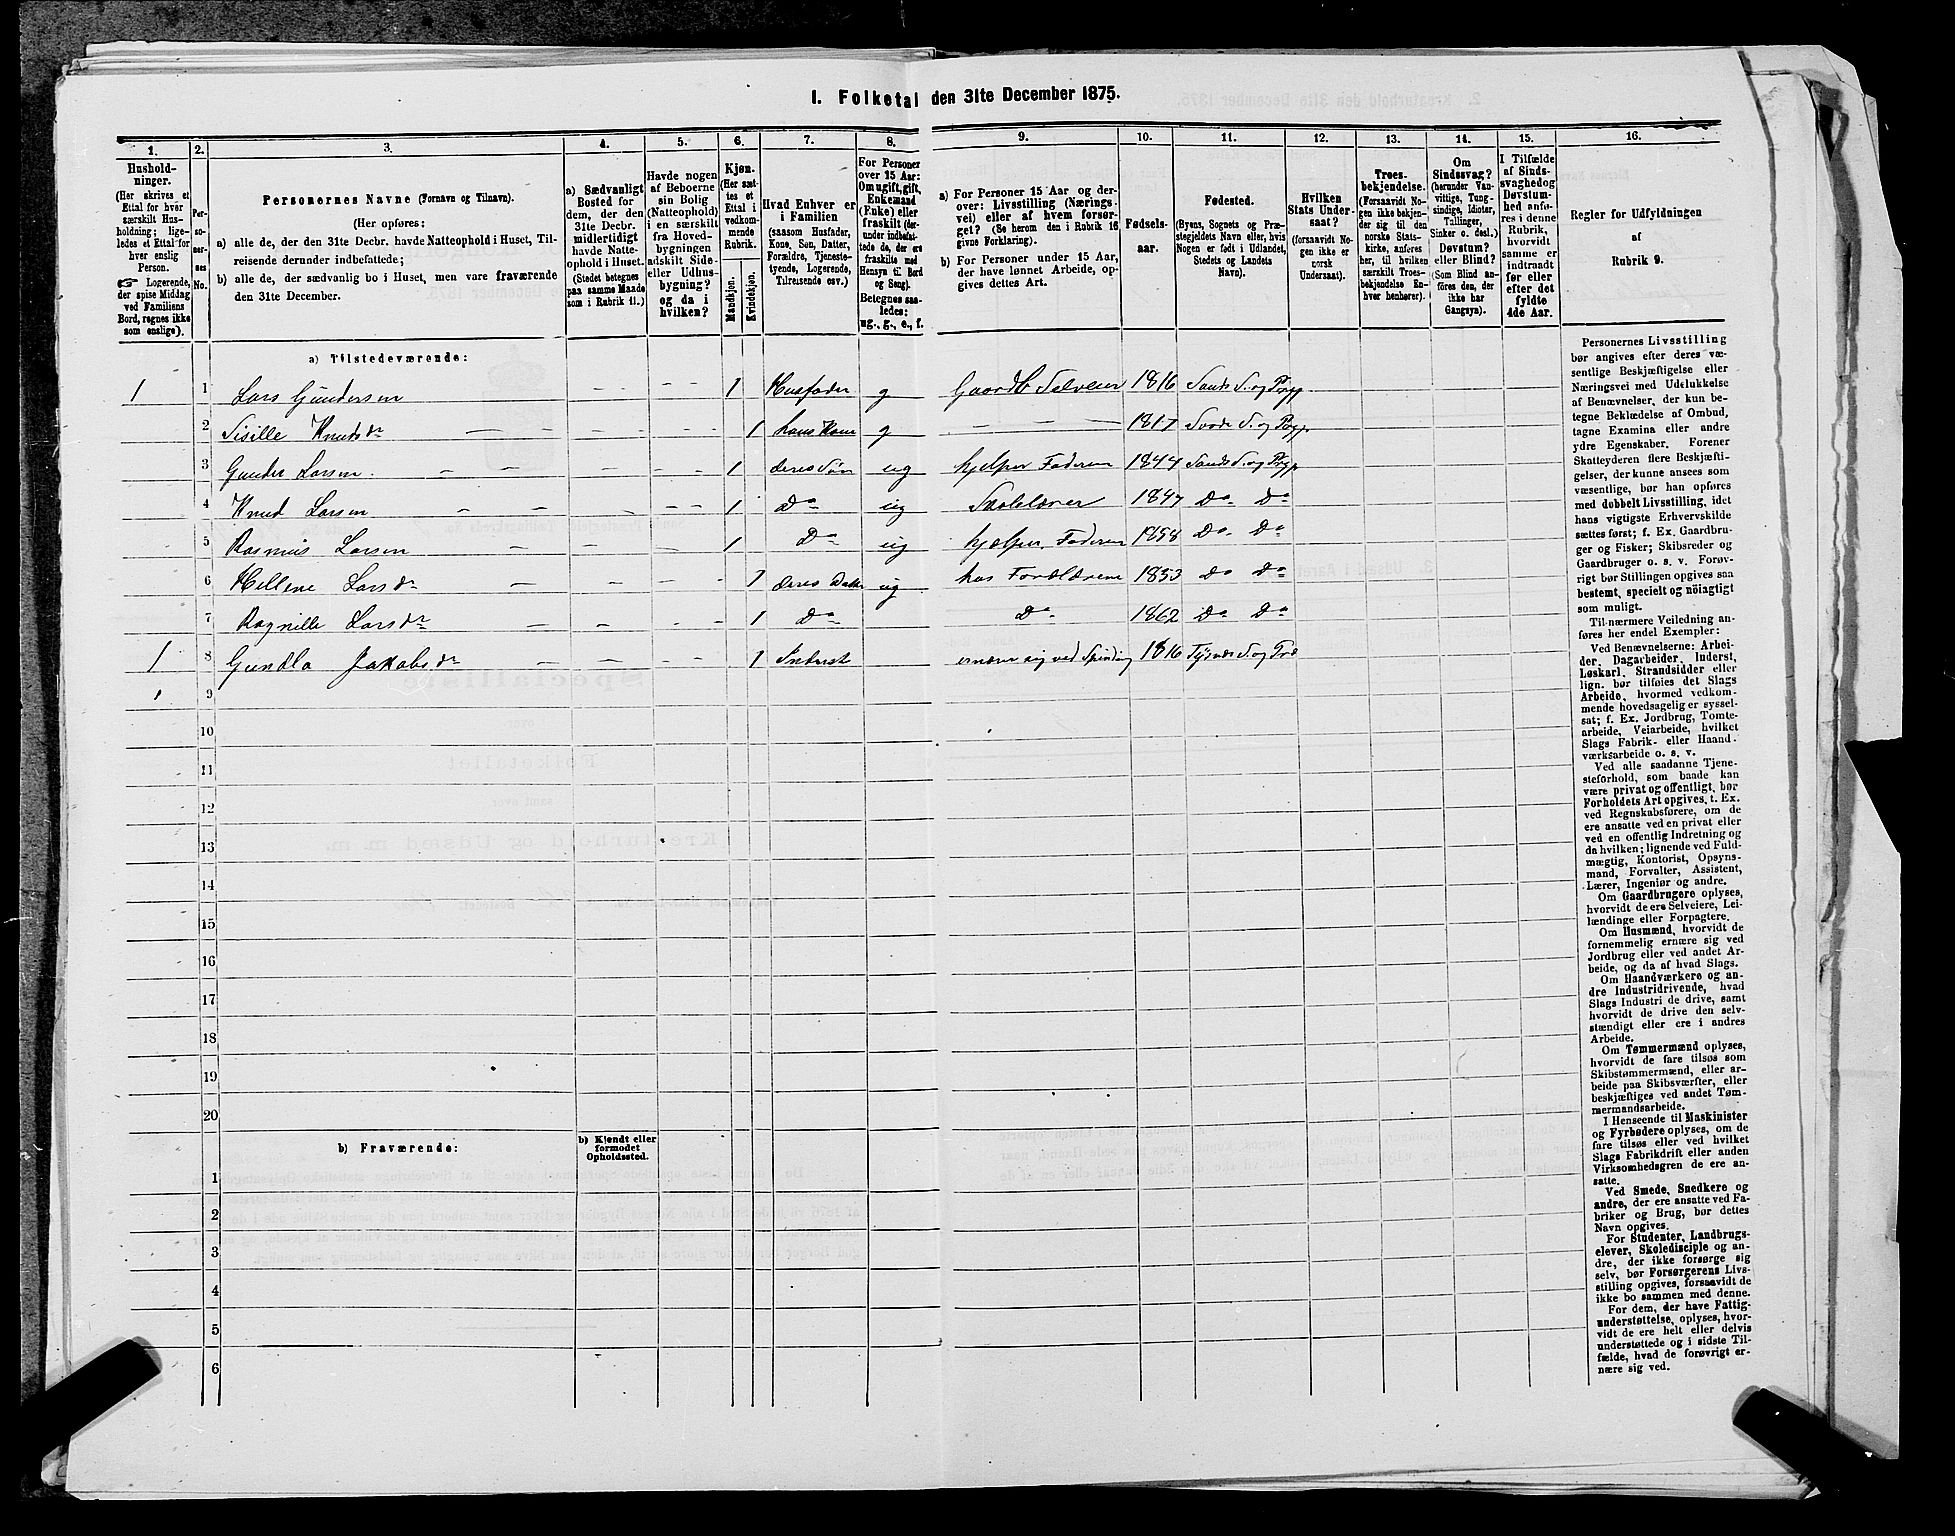 I. Folketal den 31te December 1875.
1. 2. 3. 4. 5. 6. 7. 8. 9. 10. 11. 12. 13. 14. 15. 16.
Hushold-
ninger.
(Her skrives et
Ettal for hver
særskilt Hus-
holdning; lige-
ledes et Ettal for
hver enslig
Person.
☞ Logerende,
der spise Middag
ved Familiens
Bord, regnes ikke
som enslige).
Per-
so-
ner-
nes
No.
Personernes Navne (Fornavn og Tilnavn).
(Her opføres:
a) alle de, der den 31te Decbr. havde Natteophold i Huset, Til-
reisende derunder indbefattede;
b) alle de, der sædvanlig bo i Huset, men vare fraværende
den 31te December.
a) Sædvanligt
Bosted for
dem, der den
31te Decbr.
midlertidigt
havde Natte-
ophold i Huset.
(Stedet betegnes
paa samme Maade
som i Rubrik 11.)
Havde nogen
af Beboerne
sin Bolig
(Natteophold)
i en særskilt
fra Hoved-
bygningen
adskilt Side-
eller Udhus-
bygning?
og da i
hvilken?
Kjøn.
(Her sæt-
tes et
Ettal i
vedkom-
mende
Rubrik.
Mandkjøn.
Kvindekjøn.
Hvad Enhver er
i Familien
(saasom Husfader,
Kone, Søn, Datter,
Forældre, Tjeneste-
tyende, Logerende,
Tilreisende osv.)
For Personer
over 15 Aar:
Om ugift, gift,
Enkemand
(Enke) eller
fraskilt (der-
under indbefat-
tede de, der ere
fraskilte med
Hensyn til Bord
og Seng).
Betegnes saa-
ledes:
ug., g., e., f.
a) For Personer 15 Aar og der-
over: Livsstilling (Nærings-
vei) eller af hvem forsør-
get? (Se herom den i Rubrik 16
givne Forklaring).
b) For Personer under 15 Aar,
der have lønnet Arbeide, op-
gives dettes Art.
Fødsels-
aar.
Fødested.
(Byens, Sognets og Præ-
stegjeldets Navn eller, hvis
Nogen er født i Udlandet,
Stedets og Landets
Navn).
Hvilken
Stats Under-
saat?
(forsaavidt No-
gen ikke er
norsk
Undersaat).
Troes-
bekjendelse.
(Forsaavidt No-
gen ikke bekjen-
der sig til den
norske Stats-
kirke, anføres
her, til hvilken
særskilt Troes-
bekjendelse En-
hver henhører).
Om
Sindssvag?
(herunder Van-
vittige, Tung-
sindige, Idioter,
Tullinger,
Sinker o. desl.)
Døvstum?
eller Blind?
(Som Blind an-
føres den, der
ikke har
Gangsyn).
I Tilfælde
af Sinds-
svaghed og
Døvstum-
hed anfø-
res i denne
Rubrik,
hvorvidt
samme er
indtraadt
før eller
efter det
fyldte
4de Aar.
Regler for Udfyldningen
af
Rubrik 9.
a) Tilstedeværende:
1 1 Lars Gundersen — — — 1 Husfader g Gaardb Selveier 1816 Sands S. og Prgp
2 Sisille Knudsdr — — — — — 1 hans Kone g — — — 1817 S. og Prgp
3 Gunder Larsen — — — — — 1 deres Søn ug hjelper Faderen 1844 Sands S. og Prgp
4 Knud Larsen — — — — — 1 Do ug Skolelærer 1847 Do Do
5 Rasmus Larsen — — — — 1 Do ug hjelper Faderen 1858 Do Do
6 Hellene Larsdr — — — — 1 deres Datter ug hos Forældrene 1853 Do Do
7 Ragnille Larsdr — — — — 1 Do Do 1862 Do Do
1 8 Gundla Jakobsdr — — — — 1 Inderst ernærer sig ved Spinding 1816 Tysnes S. og Præ
1 9
10
11
12
13
14
15
16
17
18
19
20
b) Fraværende:
b) Kjendt eller
formodet
Opholdssted.
1
2
3
4
5
6
Personernes Livsstilling
bør angives efter deres væ-
sentlige Beskjæftigelse eller
Næringsvei med Udelukkelse
af Benævnelser, der kun be-
tegne Beklædelse af Ombud,
tagne Examina eller andre
ydre Egenskaber. Forener
Skatteyderen flere Beskjæfti-
gelser, der kunne ansees som
væsentlige, bør han opføres
med dobbelt Livsstilling, idet
hans vigtigste Erhvervskilde
sættes først; f. Ex. Gaardbru-
ger og Fisker; Skibsreder og
Gaardbruger o. s. v. Forøv-
rigt bør Stillingen opgives saa
bestemt, specielt og nøiagtigt
som muligt.
Til nærmere Veiledning an-
føres her endel Exempler:
Ved Benævnelserne: Arbei-
der, Dagarbeider, Inderst,
Løskarl, Strandsidder eller
lign. bør tilføies det Slags
Arbeide, hvormed vedkom-
mende hovedsagelig er syssel-
sat; f. Ex. Jordbrug, Tomte-
arbeide, Veiarbeide, hvilket
Slags Fabrik- eller Haand-
værksarbeide o. s. v.
Ved alle saadanne Tjene-
steforhold, som baade kan
være privat og offentligt, bør
Forholdets Art opgives, t. Ex.
ved Regnskabsførere, om de
ere ansatte ved en privat eller
ved en offentlig Indretning og
da hvilken; lignende ved Fuld-
mægtig, Kontorist, Opsyns-
mand, Forvalter, Assistent,
Lærer, Ingeniør og andre.
Om Gaardbrugere oplyses,
hvorvidt de ere Selveiere, Lei-
lændinge eller Forpagtere.
Om Husmænd, hvorvidt de
fornemmelig ernære sig ved
Jordbrug eller ved andet Ar-
beide, og da af hvad Slags.
Om Haandværkere og an-
dre Industridrivende, hvad
Slags Industri de drive, samt
hvorvidt de drive den selv-
stændigt eller ere i andres
Arbeide.
Om Tømmermænd oplyses,
hvorvidt de fare tilsøs som
Skibstømmermænd, eller ar-
beide paa Skibsværfter, eller
beskjæftiges ved andet Tøm-
mermandsarbeide.
I Henseende til Maskinister
og Fyrbødere oplyses, om de
fare tilsøs eller ved hvilket
Slags Fabrikdrift eller anden
Virksomhedsgren de ere an-
satte.
Ved Smede, Snedkere og
andre, der ere ansatte ved Fa-
briker og Brug, bør dettes
Navn opgives.
For Studenter, Landbrugs-
elever, Skoledisciple og an-
dre, der ikke forsørge sig
selv, bør Forsørgerens Livs-
stilling opgives, forsaavidt de
ikke bo sammen med denne.
For dem, der have Fattig-
understøttelse, oplyses, hvor-
vidt de ere helt eller delvis
understøttede og i sidste Til-
fælde, hvad de forøvrigt er-
nære sig ved.